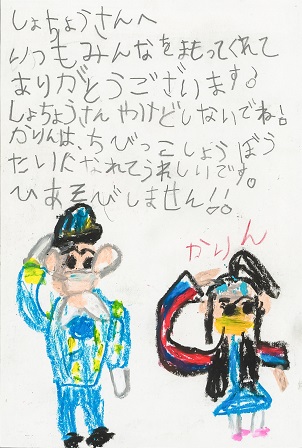 しょちょうさんへ
いつもみんなをまもってくれて
ありがとうございます。
しょちょうさんやけどしないでね!!
かりんは、ちびっこしょうぼう
たいになれてうれしいです。
ひあそびしません!!
かりん